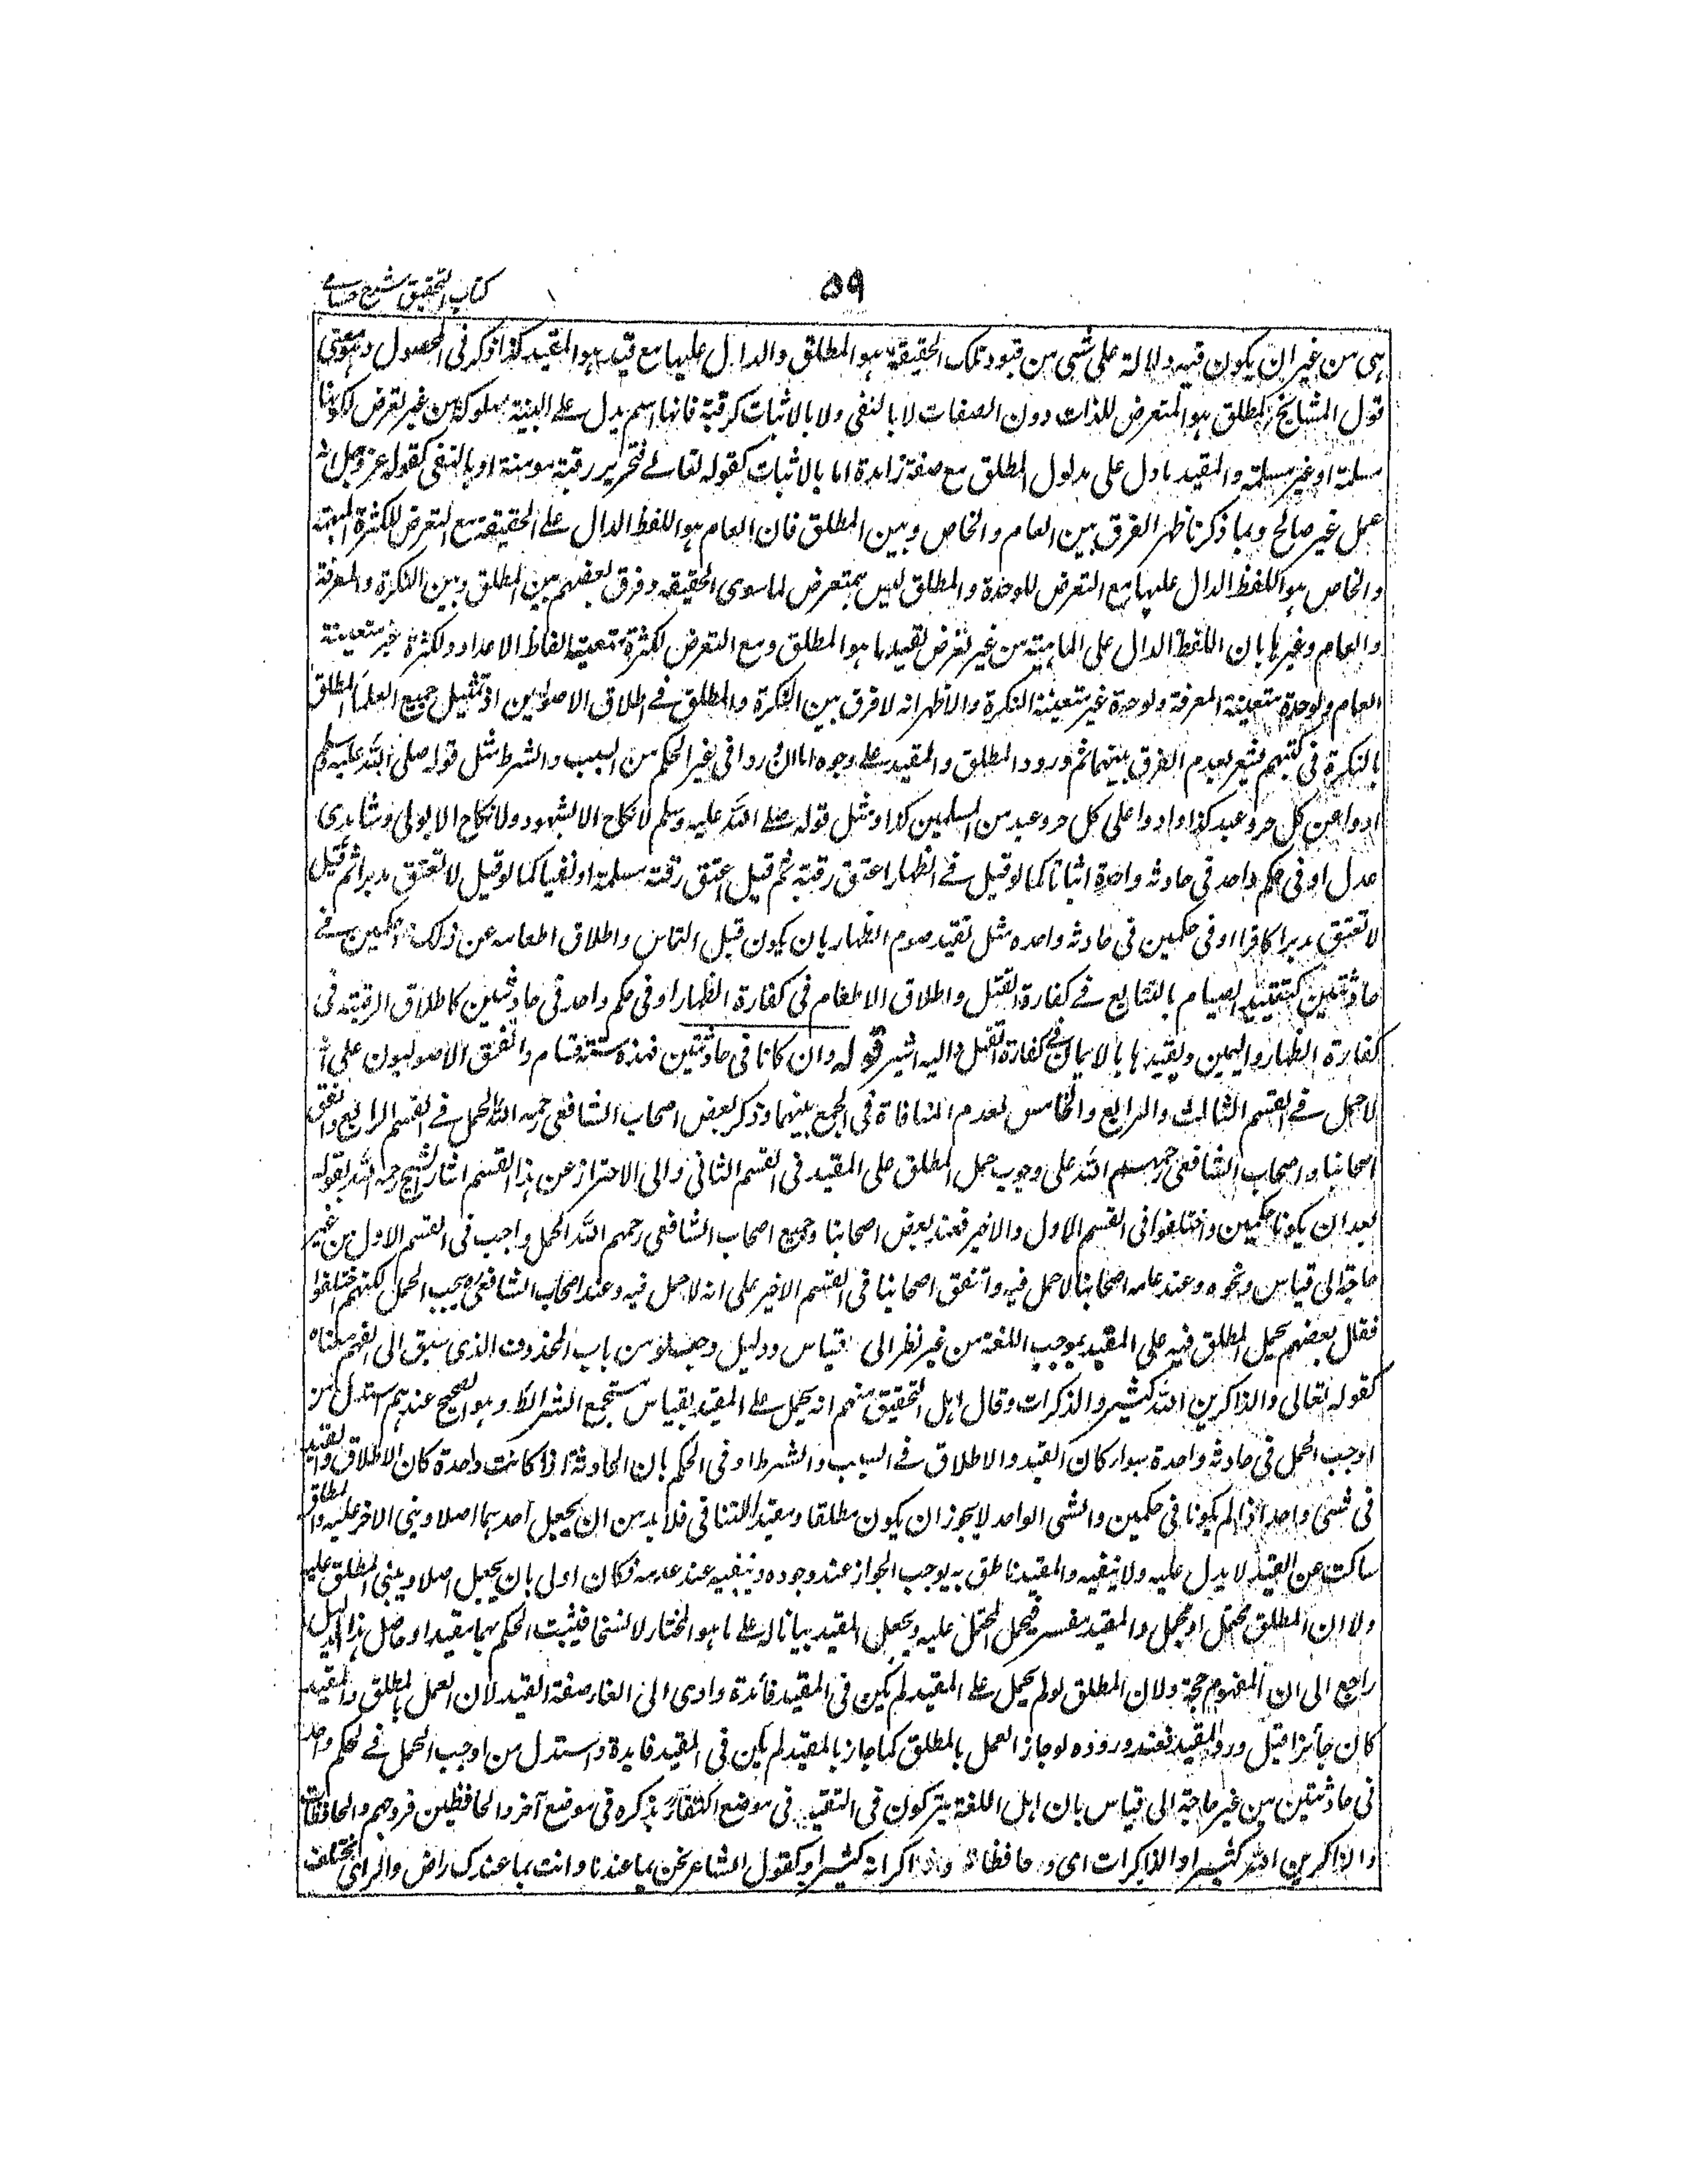 كتاب التحقيق شرح حسامى
٥٩
هى من غير ان يكون فيه دلالة على شى من قيود تلك الحقيقة هو المطلق والدال عليها مع قيد هو المقيد كذا ذكر فى المحصول وهو معنى
قول المشايخ المطلق هو المتعرض للذات دون الصفات لا بالنفى ولا بالاثبات كرقبة فانها اسم يدل على البنية مملوكة من غير تعرض لكونها
مسلمة او غير مسلمة والمقيد ما دل على مدلول المطلق مع صفة زايدة اما بالاثبات كقوله تعالے فتحرير رقبة مومنة او بالنفى كقوله عز وجل انه
عمل غير صالح وبما ذكرنا ظهر الفرق بين العام والخاص وبين المطلق فان العام هو اللفظ الدال على الحقيقة مع التعرض للكثرة المبهمة
والخاص هو اللفظ الدال عليها مع التعرض للوحدة والمطلق ليس بمتعرض لما سوى الحقيقه وفرق بعضهم بين المطلق وبين النكرة والمعرفة
والعام وغيرها بان اللفظ الدال على الماهية من غير تعرض لقيد ما هو المطلق ومع التعرض لكثرة متعينة الفاظ الاعداد ولكثرة غير متعينة
العام ولوحدة متعينة المعرفة ولوحدة غير متعينة النكرة والاظهر انه لا فرق بين النكرة والمطلق فے اطلاق الاصوليين اذ تمثيل جميع العلماء المطلق
بالنكرة فى كتبهم مشعر بعدم الفرق بينهما ثم ورود المطلق والمقيد على وجوه اما ان وردا فى غير الحكم من السبب والشرط مثل قوله صلى الله عليه وسلم
ادوا عن كل حر وعبد كذا وادوا على كل حر وعبد من المسلمين كذا ومثل قوله صلے الله عليه وسلم لا نكاح الا بشهود ولا نكاح الا بولى وشاهدى
عدل او فى حكم واحد فى حادثه واحدة اثباتا كما لو قيل فے الظهار اعتق رقبة ثم قيل اعتق رقبة مسلمة او نفيا كما لو قيل لا تعتق مدبرا ثم قيل
لا تعتق مدبرا كافرا او فى حكمين فى حادثه واحده مثل تقيد صوم الظهار بان يكون قبل التماس واطلاق اطعامه عن ذلك او حكمين فے
حادثتين كتقييد الصيام بالتتابع فے كفارة القتل واطلاق الاطعام فى كفارة الظهار او فى حكم واحد فى حادثتين كاطلاق الرقبة فى
كفارة الظهار واليمين وتقييدها بالايمان فے كفارة القتل واليه اشير قوله وان كانا فى حادثتين فهذه ستة اقسام واتفق الاصوليون على انه
لا حمل فے القسم الثالث والرابع والخامس لعدم المنافاة فى الجمع بينهما وذكر بعض اصحاب الشافعى رحمه الله الحمل فے القسم الرابع واتفق
اصحابنا واصحاب الشافعى رحمهم الله على وجوب حمل المطلق على المقيد فى القسم الثانى والى الاحتراز عن هذا القسم اشار الشيخ رحمه الله بقوله
بعد ان يكونا حكمين واختلفوا فى القسم الاول والاخير فعند بعض اصحابنا وجميع اصحاب الشافعى رحمهم الله الحمل واجب فى القسم الاول من غير
حاجة الى قياس ونحوه وعند عامه اصحابنا لا حمل فيه واتفق اصحابنا فى القسم الاخير على انه لا حمل فيه وعند اصحاب الشافعى رح يجب الحمل لكنهم اختلفوا
فقال بعضهم يحمل المطلق فيه على المقيد بموجب اللغة من غير نظر الى قياس ودليل وجعلوه من باب المحذوف الذى سبق الى الفهم معناه
كقوله تعالى والذاكرين الله كثيرا والذاكرات وقال اهل التحقيق منهم انه يحمل على المقيد بقياس مستجمع الشرائط وهو الصحيح عندهم استدل من
اوجب الحمل فى حادثه واحدة سواء كان القيد والاطلاق فے السبب والشرط او فى الحكم بان الحادثة اذا كانت واحدة كان الاطلاق والتقييد
فى شئ واحد اذا لم يكونا فى حكمين والشى الواحد لا يجوز ان يكون مطلقا ومقيدا للتنافى فلا بد من ان يجعل احدهما اصلا ويبنى الاخر عليه والمطلق
ساكت عن القيد لا يدل عليه ولا ينفيه والمقيد ناطق به يوجب الجواز عند وجوده وينفيه عند عدمه فكان اولى بان يجعل اصلا ويبنى المطلق عليه
ولان المطلق محتمل او مجمل والمقيد مفسر فيحمل المحتمل عليه ويجعل المقيد بيانا له على ما هو المختار لا نسخا فيثبت الحكم بهما مقيدا وحاصل هذا الدليل
راجع الى ان المفهوم حجة ولان المطلق لو لم يحمل على المقيد لم يكن فى المقيد فائدة وادى الى الغاء صفة القيد لان العمل بالمطلق والمقيد
كان جائزا قبل ورود المقيد فعند وروده لو جاز العمل بالمطلق كما جاز بالمقيد لم يكن فى المقيد فايدة واستدل من اوجب الحمل فے حكم واحد
فى حادثتين من غير حاجة الى قياس بان اهل اللغة يتركون فى التقييد فى موضع اكتفاء بذكره فى موضع آخر والحافظين فروجهم والحافظات
والذاكرين الله كثيرا والذاكرات اى وحافظاته وذاكراته كثيرا وكقول الشاعر نحن بما عندنا وانت بما عندك راض والراى مختلف